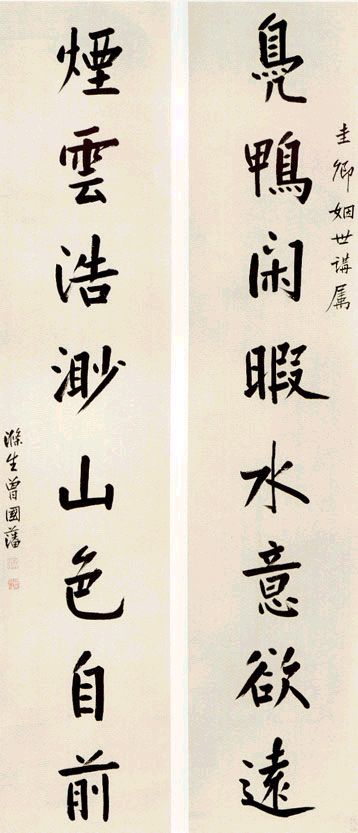 圭卿姻世講属
鳬鴨闲暇水意欲遠
煙雲浩渺山色自前
滌生曾國藩